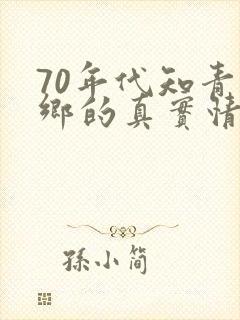 70年代知青
鄉的真實情
孫小简